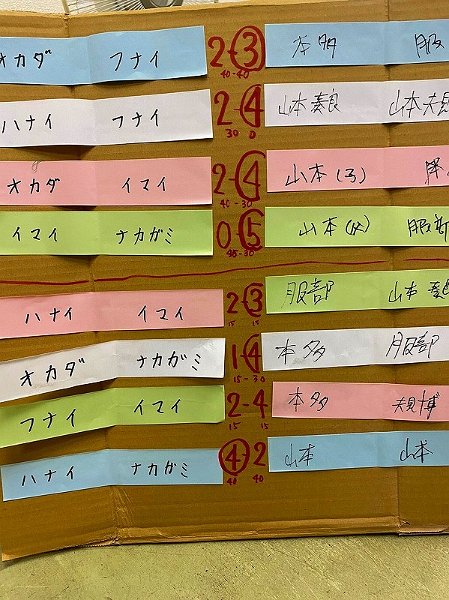 オカダ フナイ 2-3 本多 服
40-40
ハナイ フナイ 2-4 山本
30 0
オカダ イマイ 2-4 山本(子)
40-30
イマイ ナカガミ 0-5 山本(父) 服部
45-30
ハナイ イマイ 2-3 服部 山本
15 15
オカダ ナカガミ 1-4 本多 服部
15-30
フナイ イマイ 2-4 本多
15 15
ハナイ ナカガミ 4-2 山本 山本
40 40